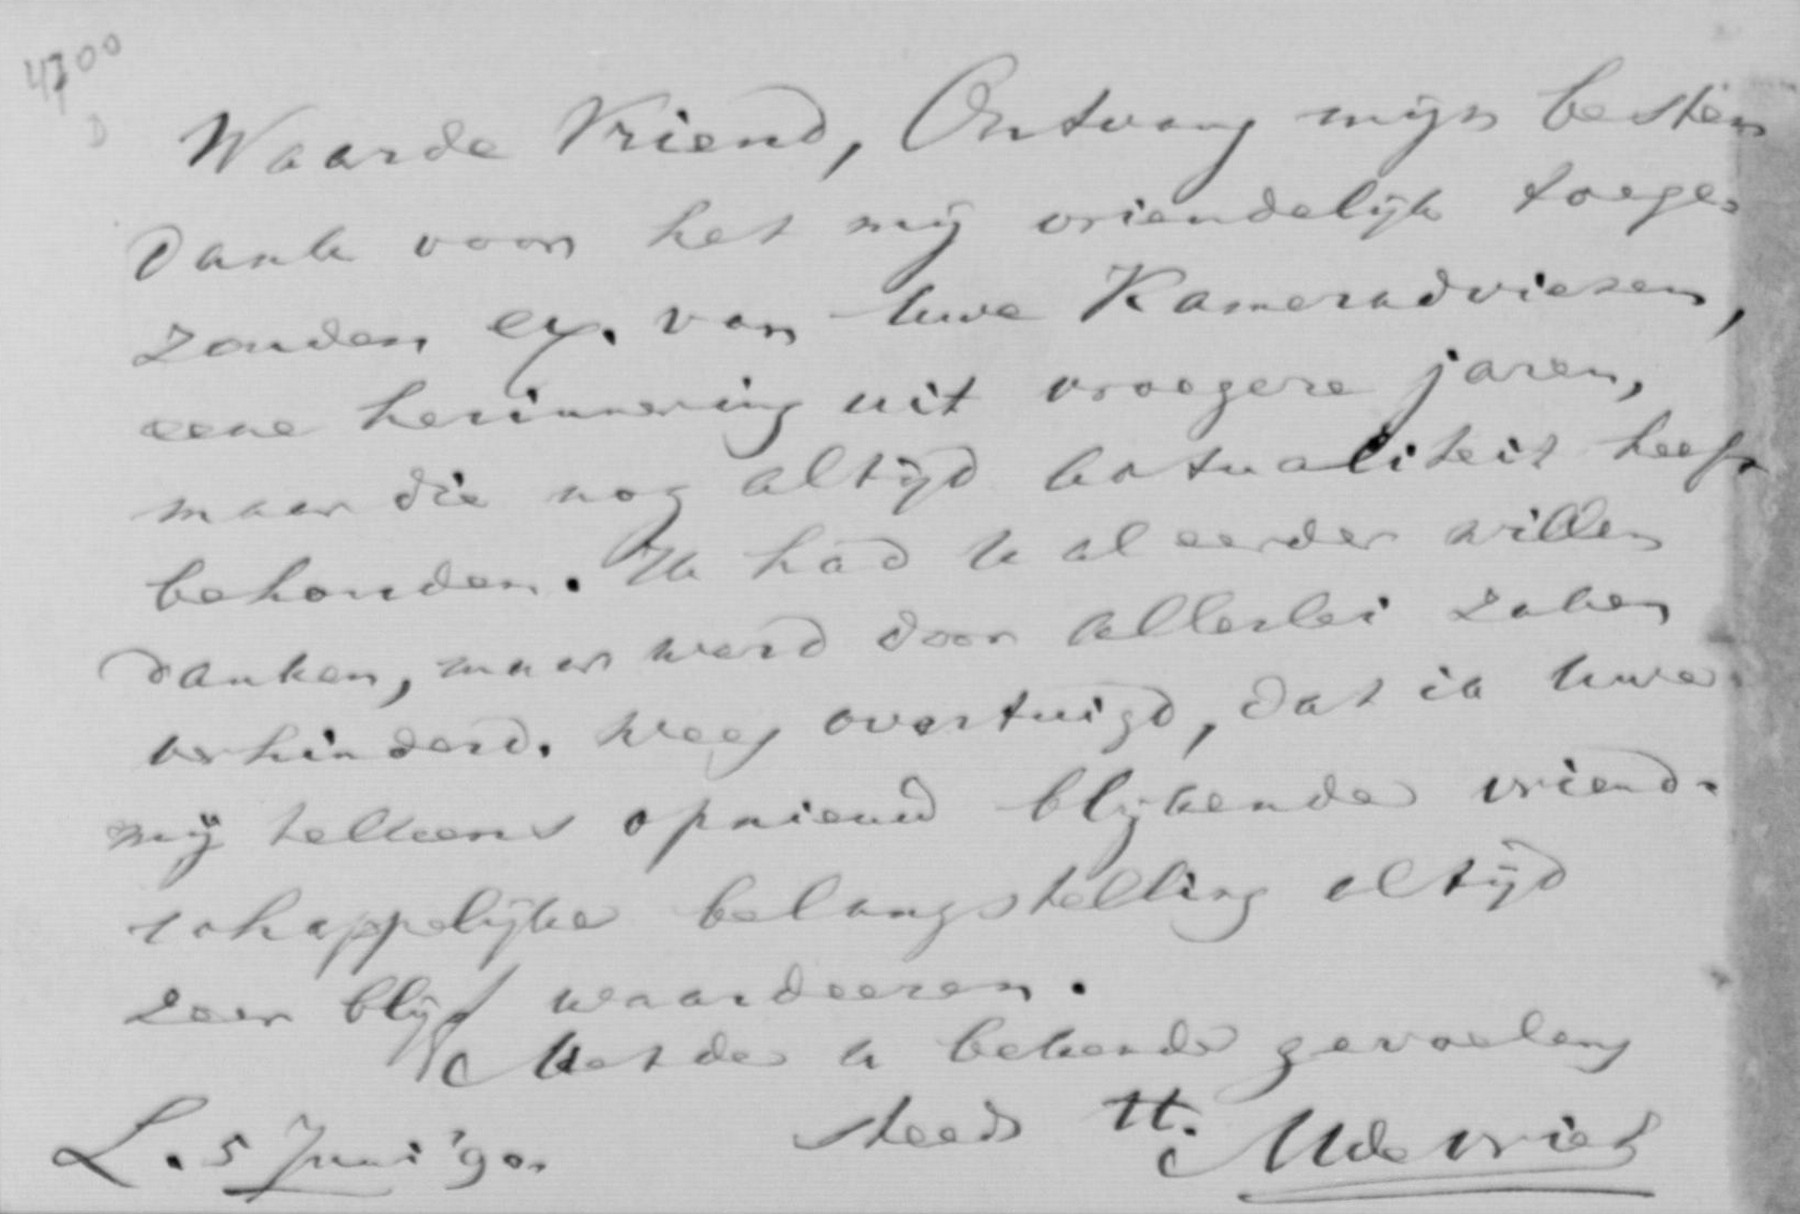 4700
D
Waarde Vriend, Ontvang mijn besten
dank voor het mij vriendelijk toege-
zonden ex. van Uwe Kameradviezen,
eene herinnering uit vroegere jaren,
maar die nog altijd actualiteit heeft
behouden. Ik had U al eerder willen
danken, maar werd door allerlei zaken
verhinderd. Wees overtuigd, dat ik Uwe
mij telkens opnieuw blijkende vriend-
schappelijke belangstelling altijd
zeer blijf waardeeren.
Met de U bekende gevoelens
steeds tt. MdeVries
L. 5 Juni '90.